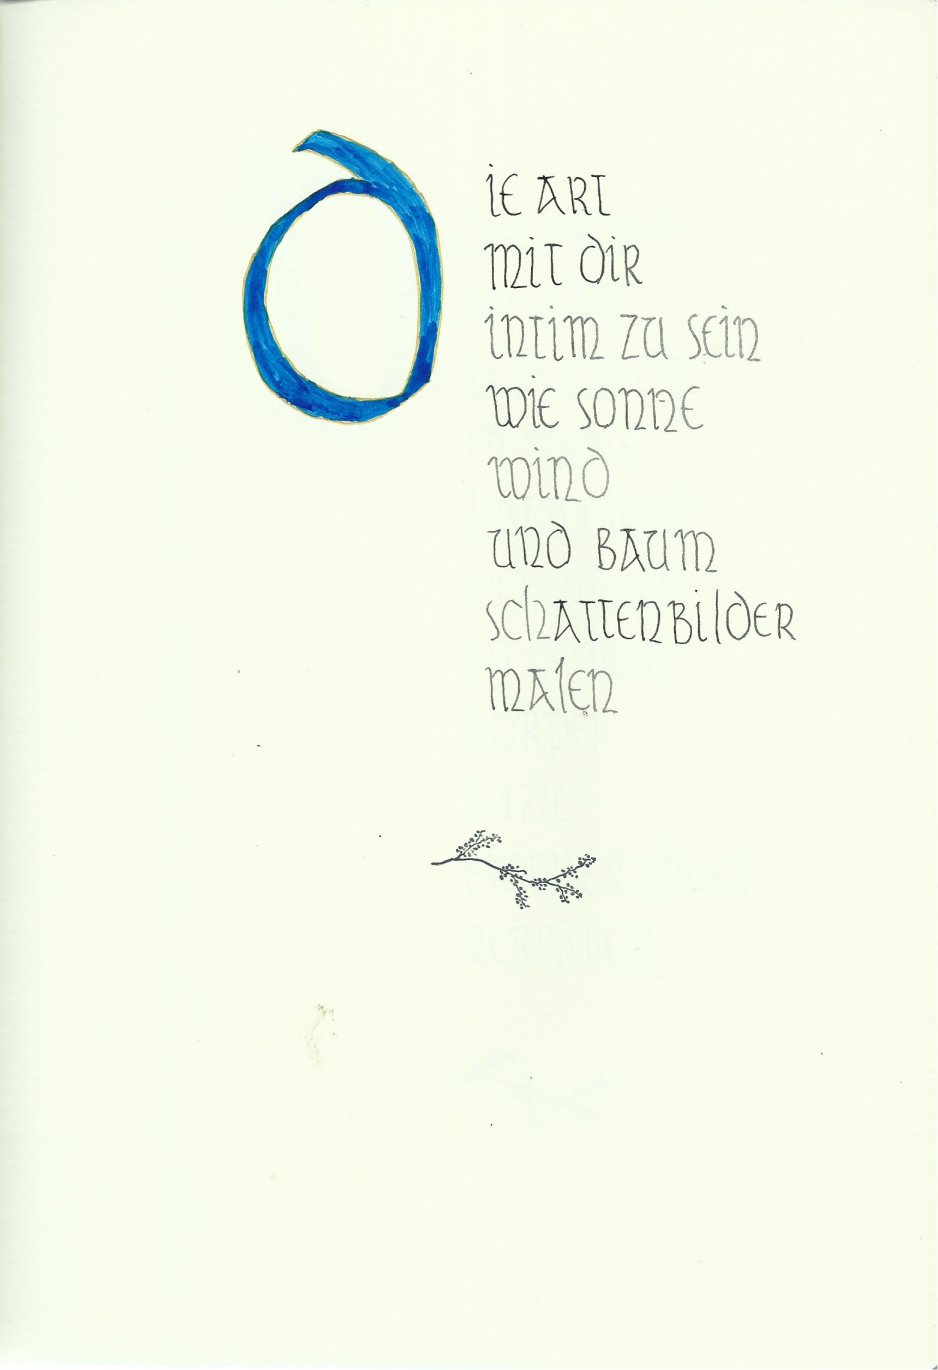 Die Art
mit dir
intim zu sein
wie Sonne
Wind
und Baum
Schattenbilder
malen